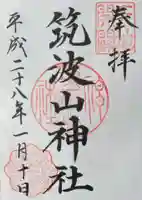 奉拝
筑波山神社
平成二十八年一月十日